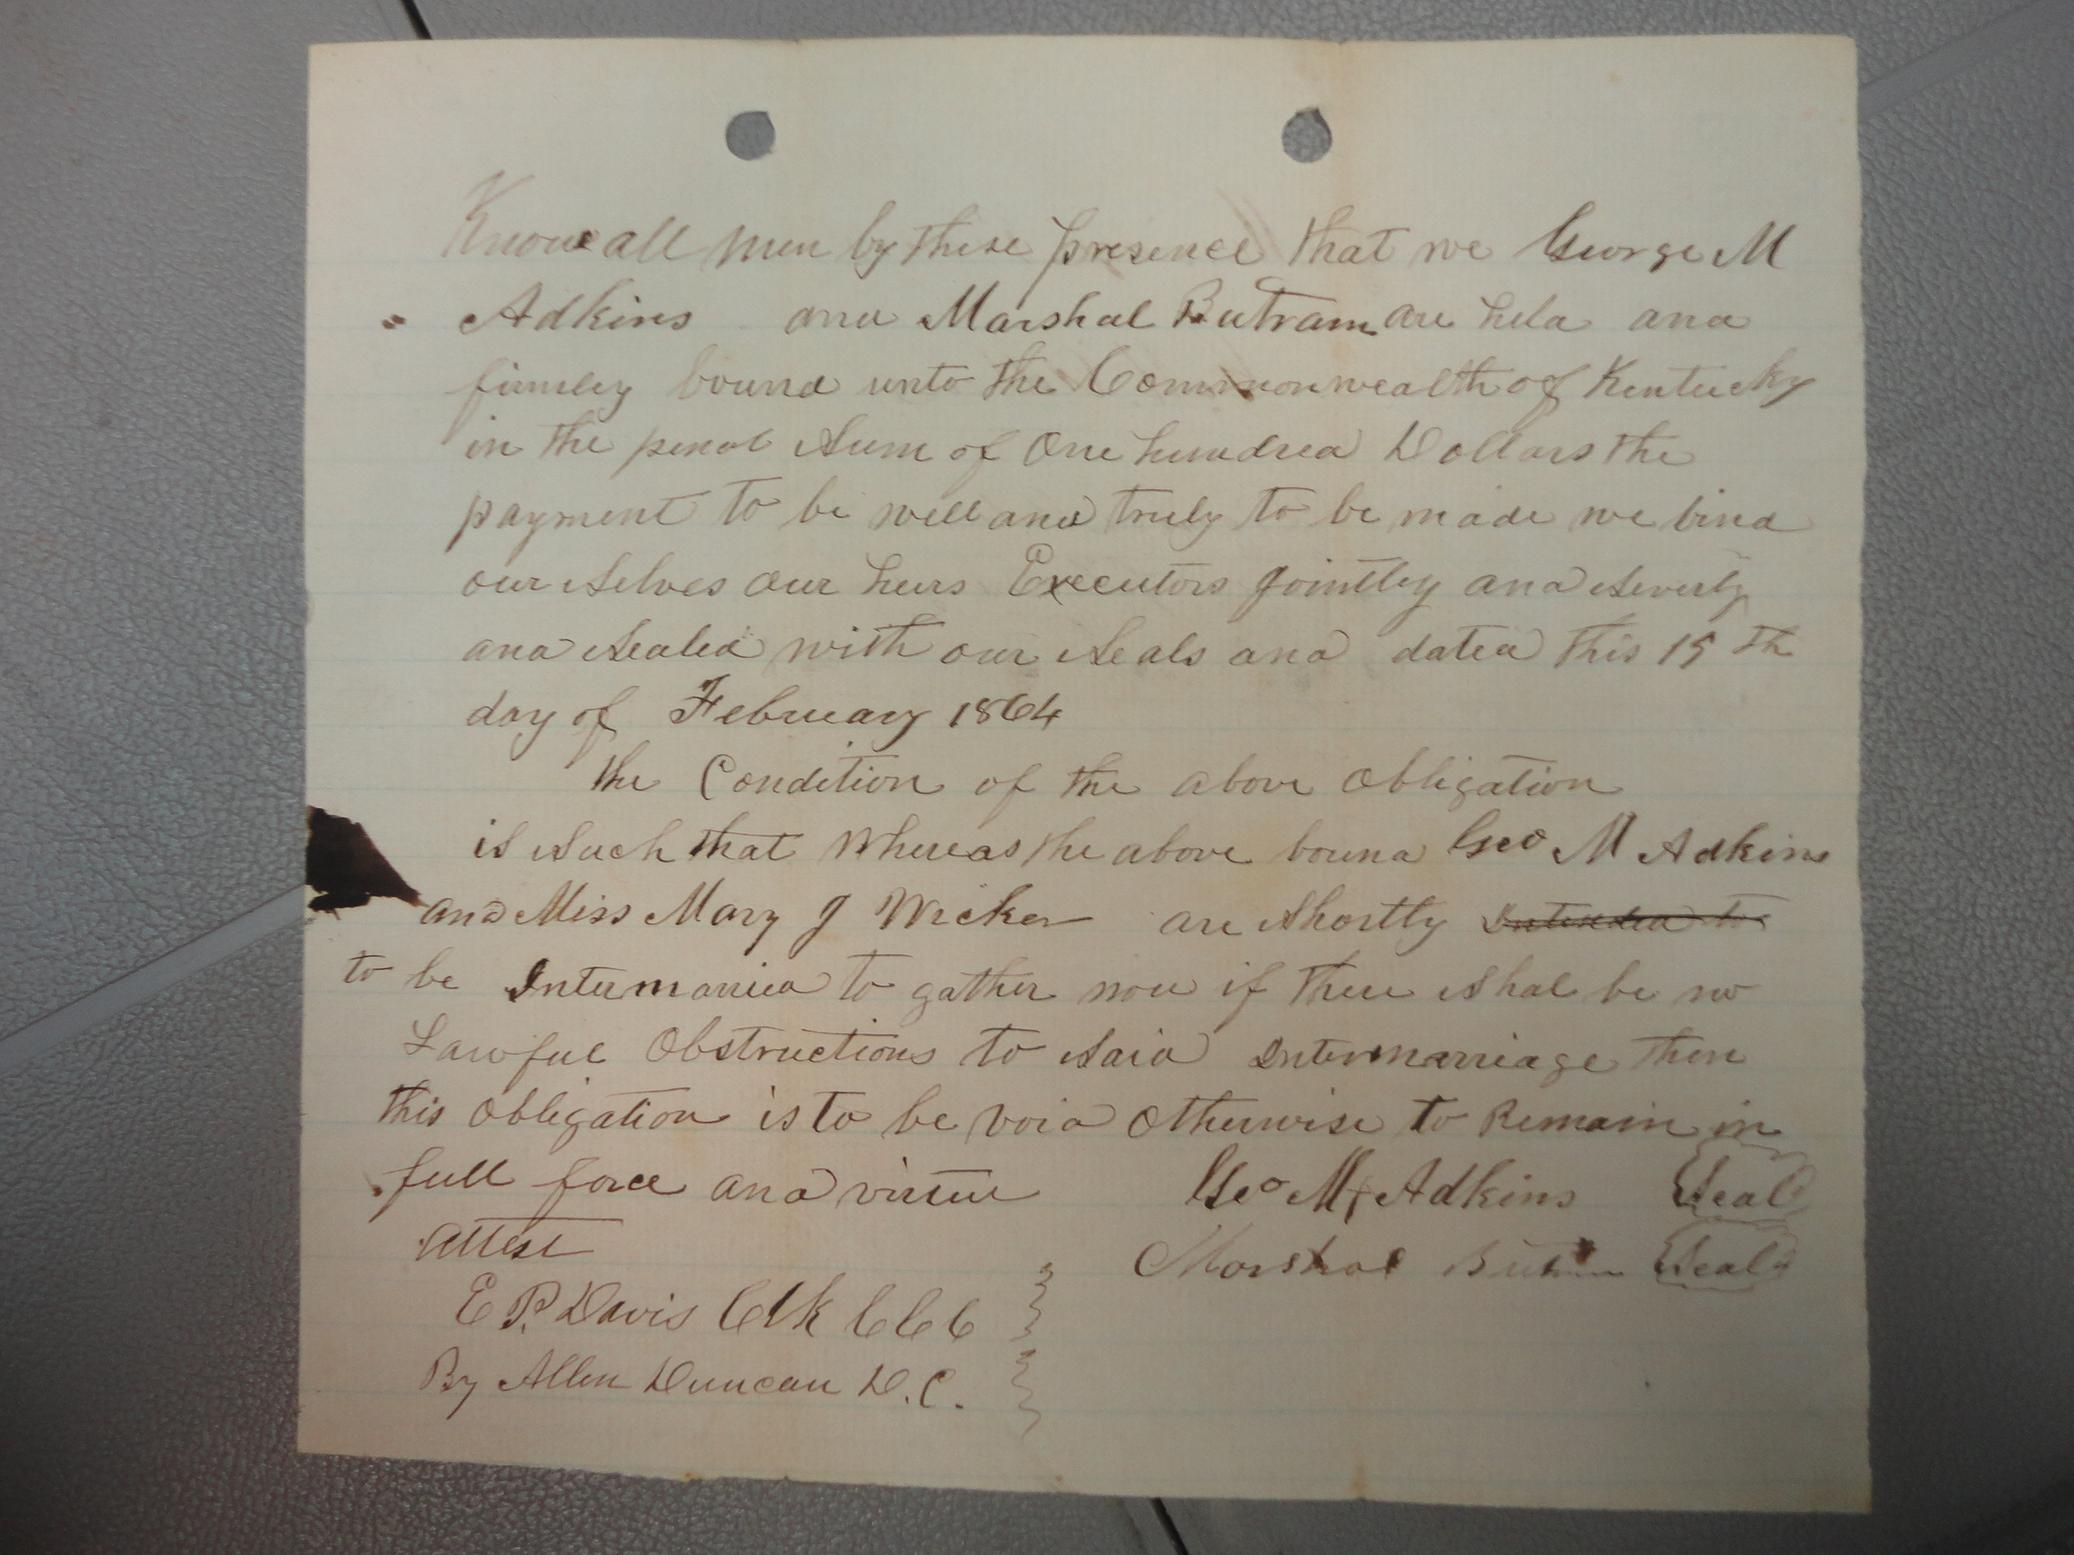 Know all men by these presence that we George M
Adkins and Marshal Butram are held and
firmley bound unto the Commonwealth of Kentucky
in the penal Sum of One hundred Dollars the
payment to be well and truly to be made we bind
our Selves our heirs Executors Jointley and Severly
and Sealed with our Seals and dated this 15th
day of February 1864
the Condition of the above obligation
is Such that Whereas the above bound Geo M Adkins
and Miss Mary J Wicker are Shortly Intended to
to be Intermarried to gather now if there Shal be no
Lawful Obstructions to Said Intermarriage then
this obligation is to be void Otherwise to Remain in
full force and virtue Geo M Adkins Seal
Attest
Marshal Butram Seal
E P. Davis Clk C C C
By Allen Duncan D.C.